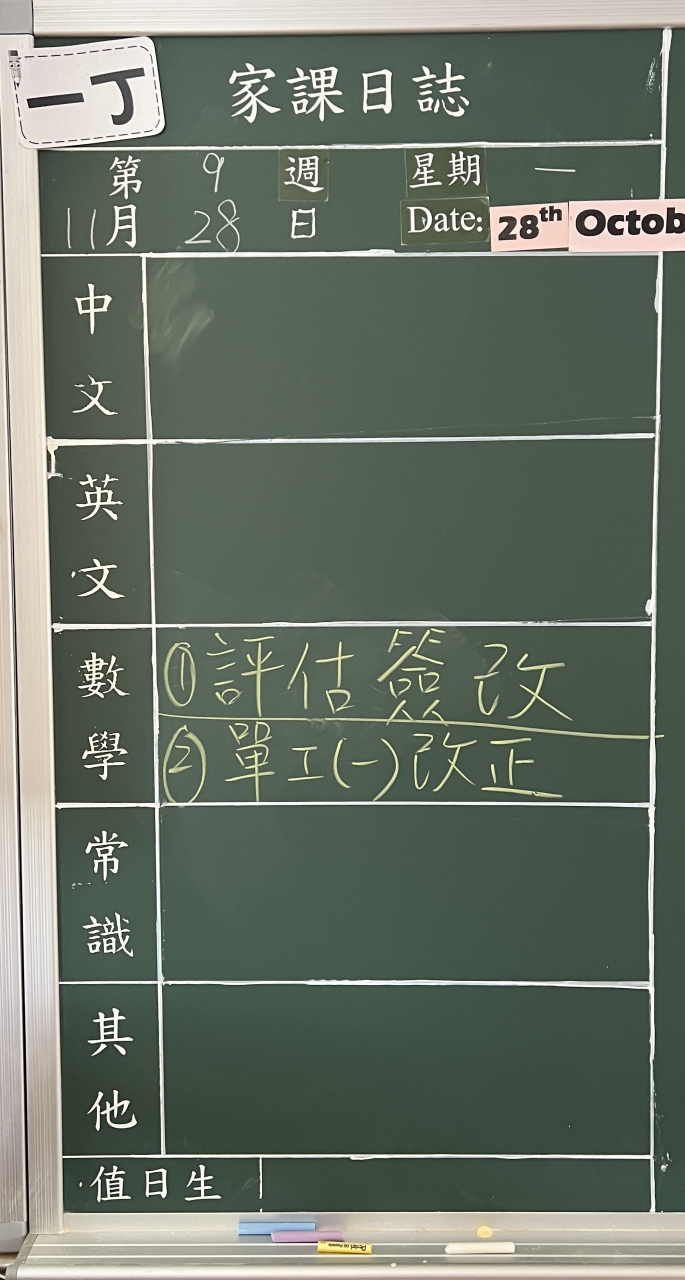 一丁
家課日誌
第 9 週 星期 一
11月 28 日 Date: 28th Octob
中文
英文
數學
①評估簽改
②單工(一)改正
常識
其他
值日生